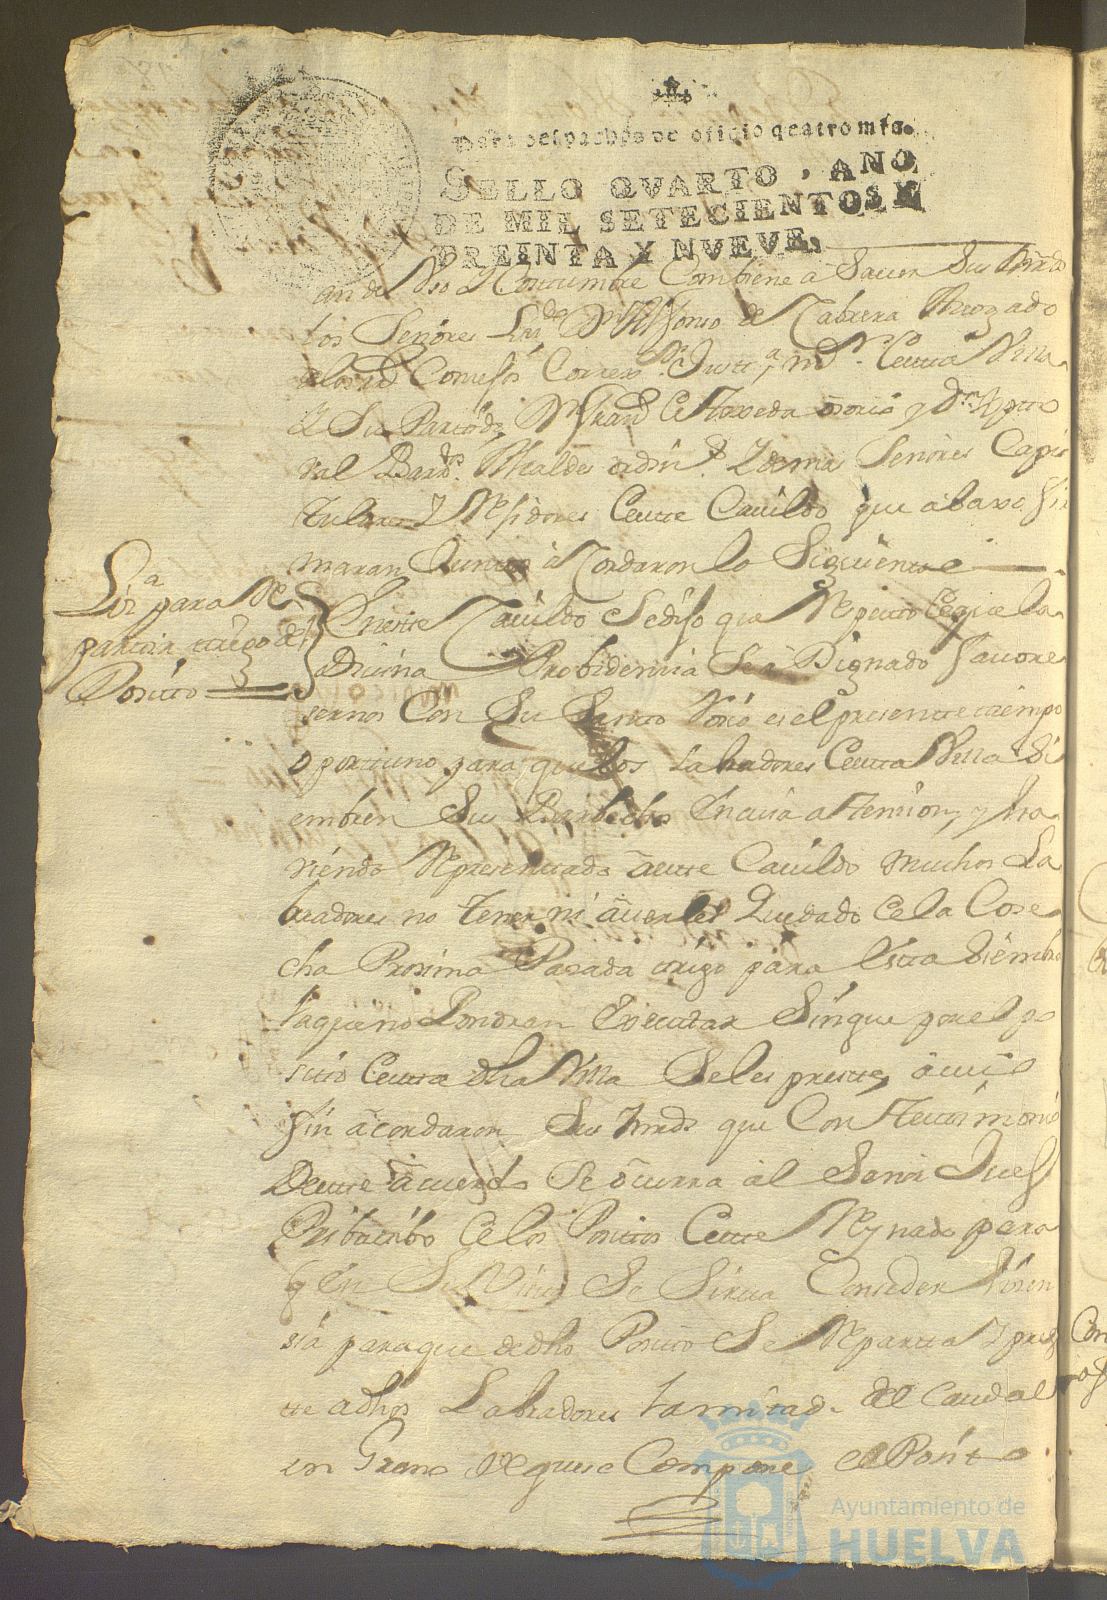 Para despachos de oficio quatro mrs.
SELLO QVARTO, AÑO
DE MIL SETECIENTOS Y
TREINTA Y NVEVE.
an de Uso y Costumbre Combiene a Sauer Sus mrds
los Señores Lizdo Dn Alfonso de Cabrera Abogado
delos Rs Consejos Correxor Justta mr Cesta Villa
Y Su Partido, Dn
ral Alcaldes ordins Y demas Señores Capi
tulares Y Rejidores Ceste Cauildo que abaxo fir
maran Juntos aCordaron lo Siguiente
Liza para Re
partir trigo del
Posito
Eneste Cauildo Sedijo que Respecto Ceque la
Diuina Probidencia Se a Dignado fauore
sernos Con Su Santo Rosio es el presente tiempo
oportuno para que los Labradores Cesta Villa Si
embren Sus Barbechos Encuia attension, y ha
uiendo Representado a este Cauildo muchos La
bradores no tener ni auerles Quedado Cela Cose
cha Proxima Pasada trigo para Esta Siembra
laqueno Pondran Executar Sinque porel po
sito Cesta dha Villa Seles preste, a cuio
fin acordaron Sus mrds que Con testimonio
Deeste acuerdo Se ocurra al Señor Juez
Pribatibo Celos Positos Ceste Reynado para
q En Su Vista Se Sirua Conseder Lisen
sia paraque dedho Posito Se Reparta Y pres
te adhos Labradores la mitad del Caudal
en Grano Deque se Compone el Posito
Ayuntamiento de
HUELVA